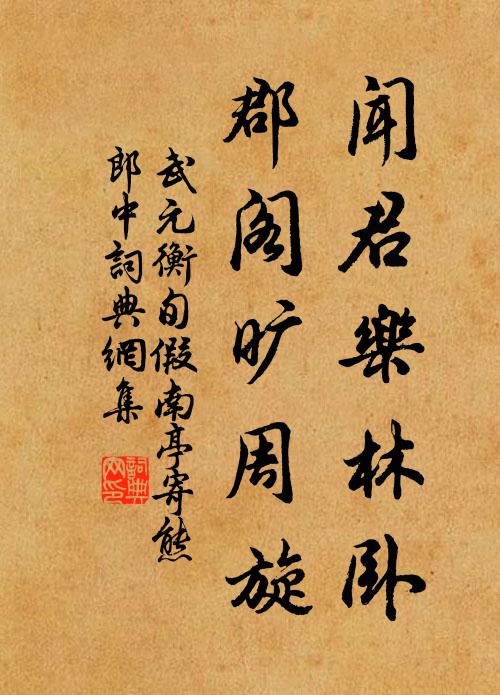 聞君樂林卧
郡阁旷周旋
武元衡旬假南亭寄熊
郎中詞典網集
詞典
网印